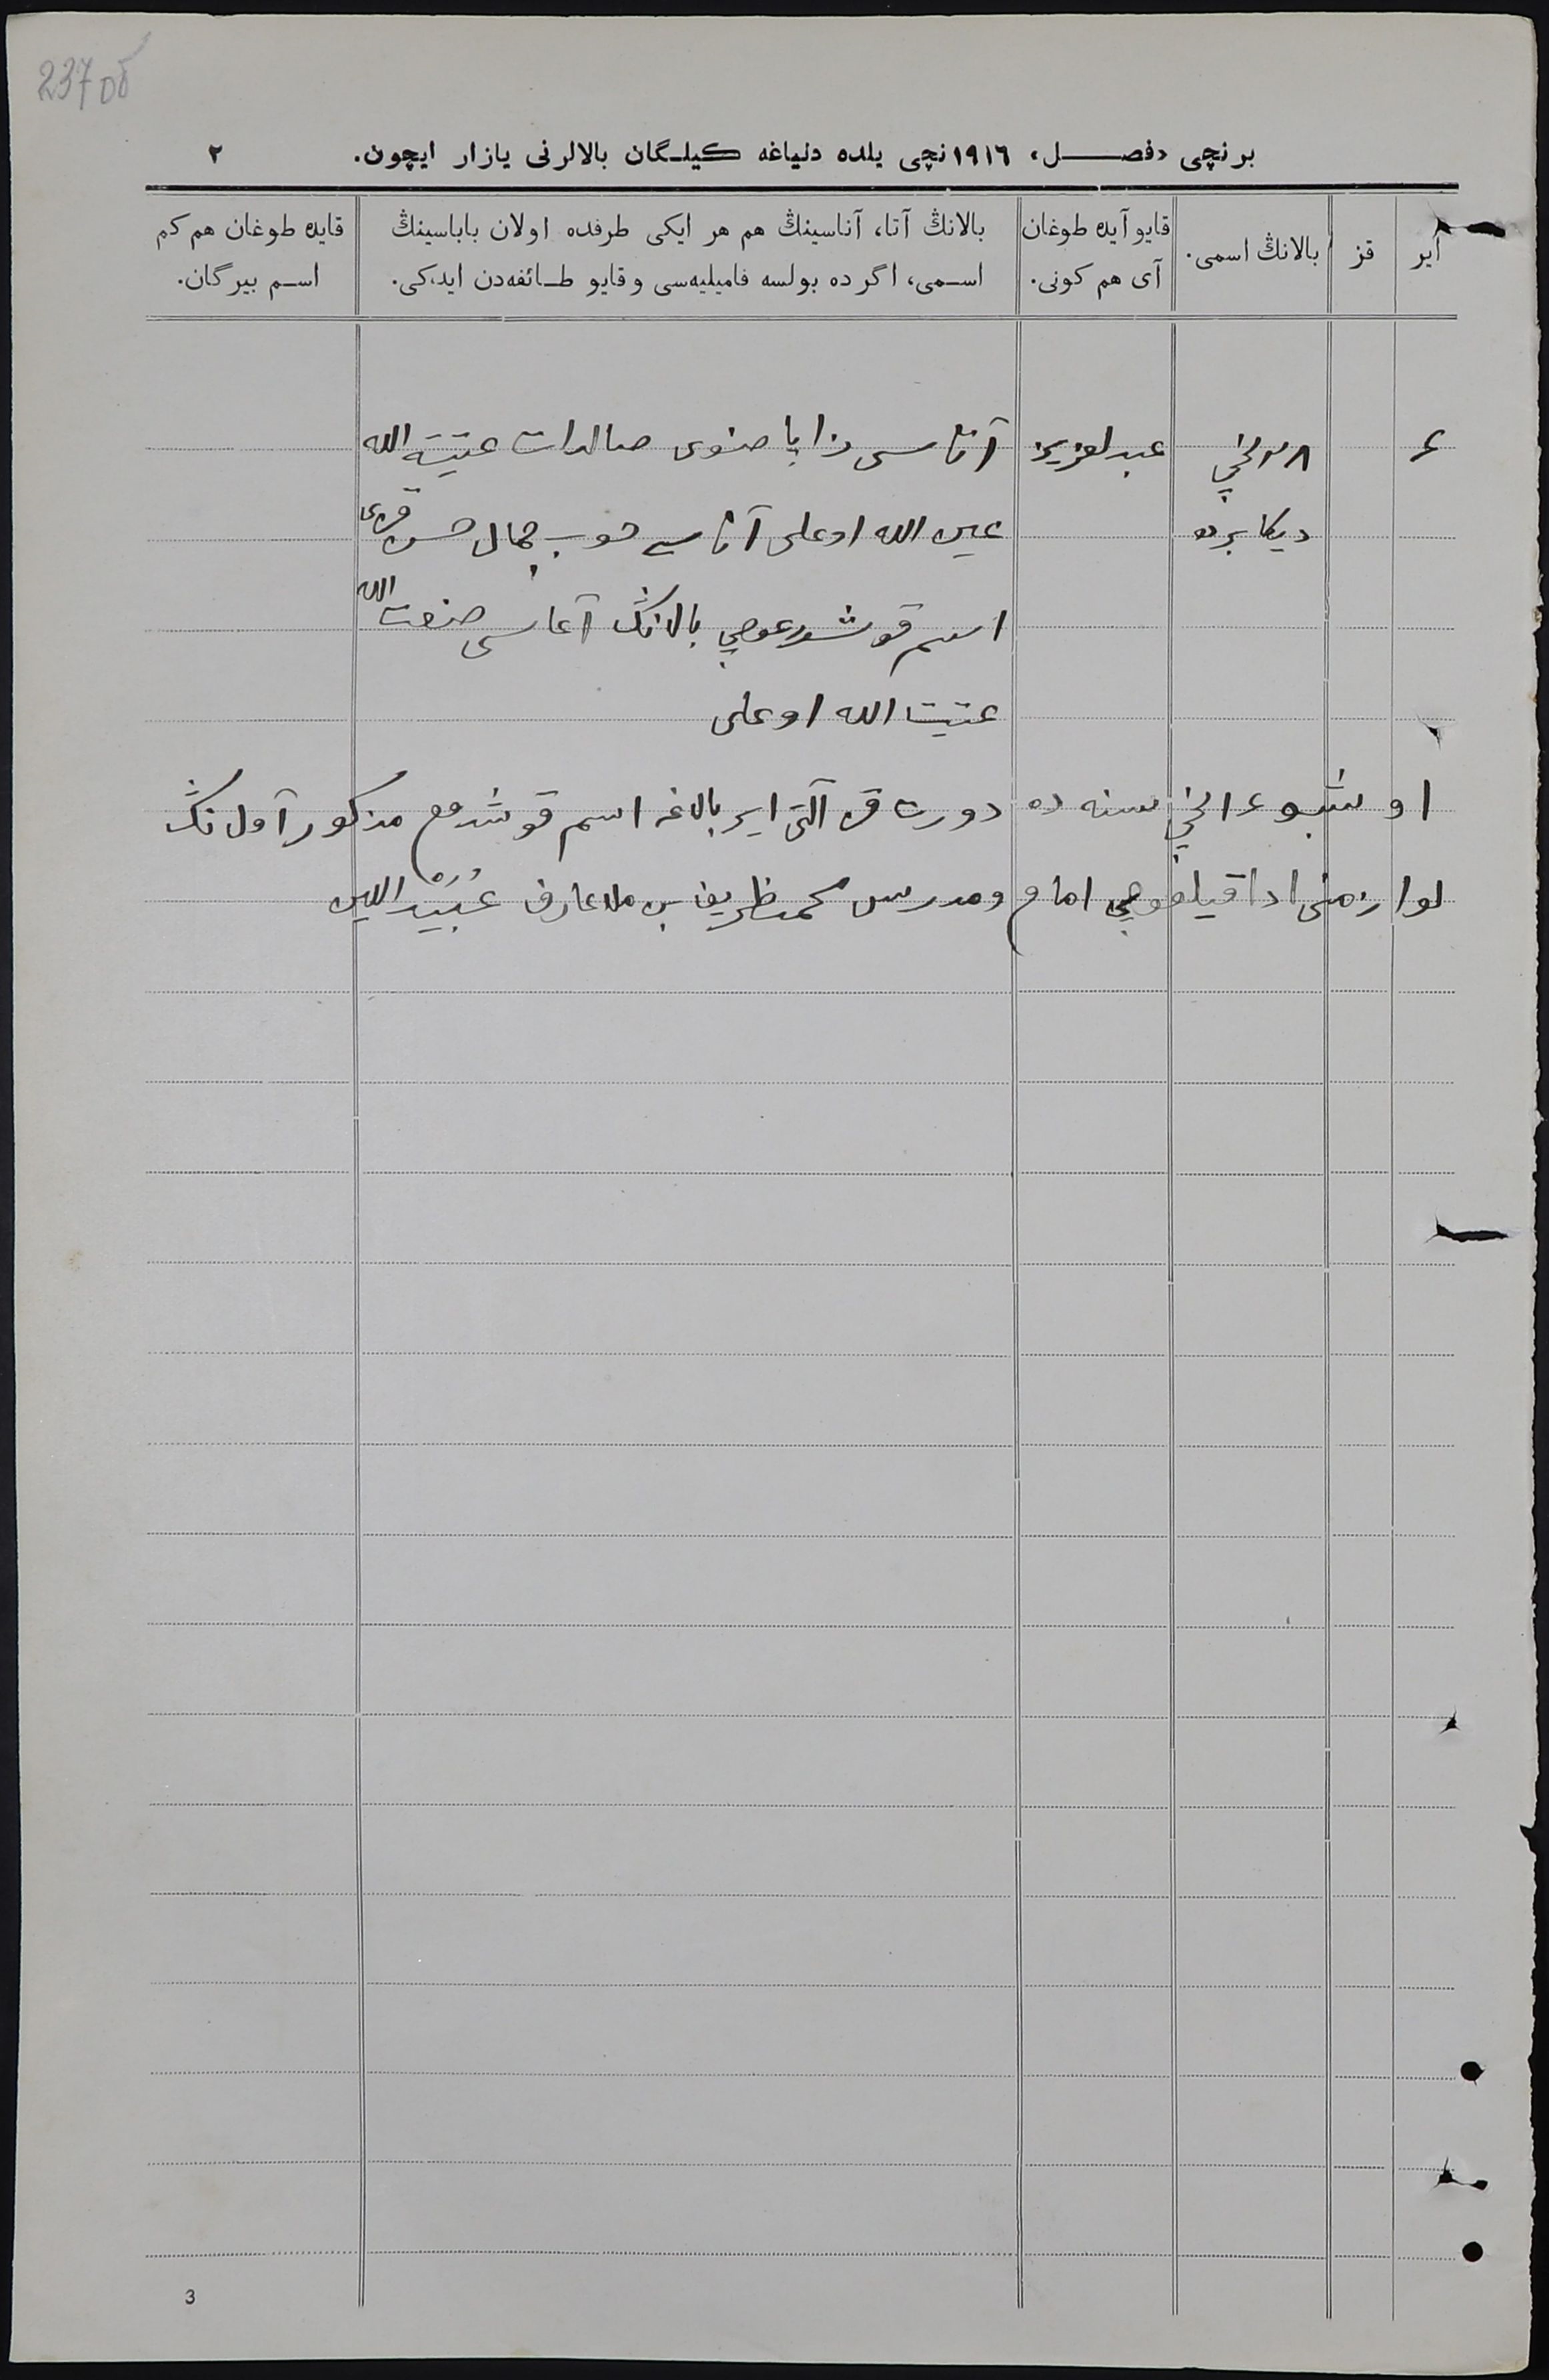 237 об
برنچی «فصل» ١٩١٦نچی یلده دنیاغه کیلگان بالالرنی یازار ایچون. ٢
ایر
قز
بالانڭ اسمی.
قایو آیده طوغان
آی هم کونی.
بالانڭ آتا، آناسینڭ هم هر ایکی طرفده اولان باباسینڭ
اسمی، اگرده بولسه فامیلیه‌سی و قایو طائفه‌دن ایدکی.
قایده طوغان هم کم
اسم بیرگان.
عبدلعزیز آتاسی صالدات الله
دیکابرده عین الله اوغلی آناسی جمال حسن قزی
اسم قوشدرغوجی بالانڭ آغاسی صنعت الله
الله اوغلی
اوشبو سنه ده دورت قز آلتی ایر بالاغه اسم قوشدم مذکور آول نڭ
لوازمنی ادا قیلغوجی امام ومدرس محمدظریف بن ملا عارف عُبَیْدالدین
3